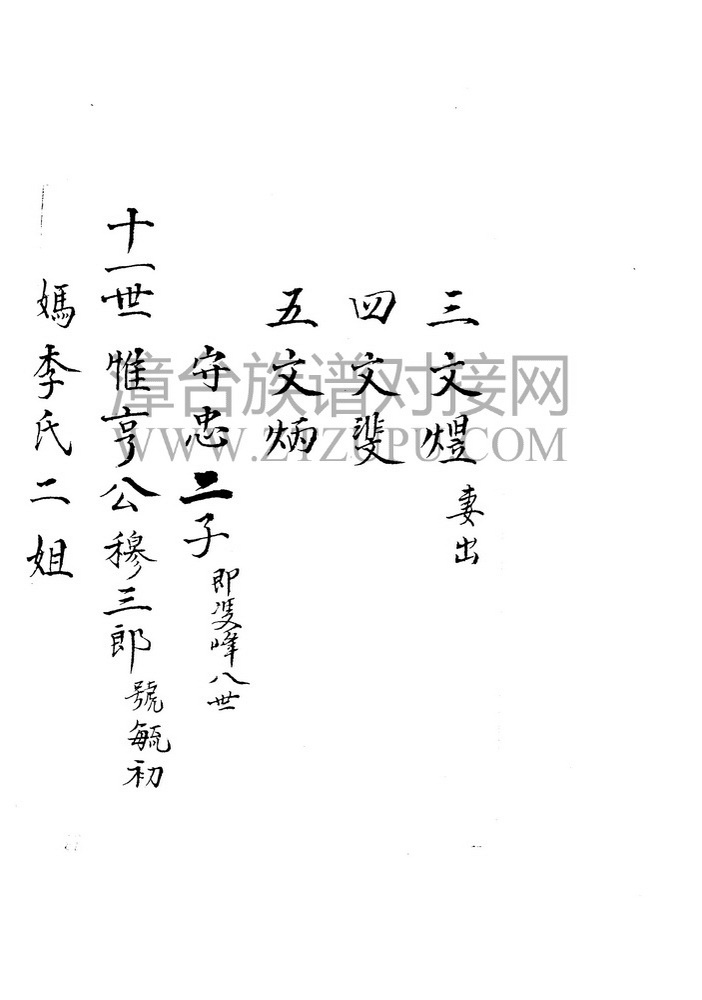 三文煜妻出
四文斐
五文炳
守忠二子即雙峰八世
十一世惟亨公穆三郎號毓初
媽李氏二姐
漳台族谱对接网
WWW.ZTZUPU.COM